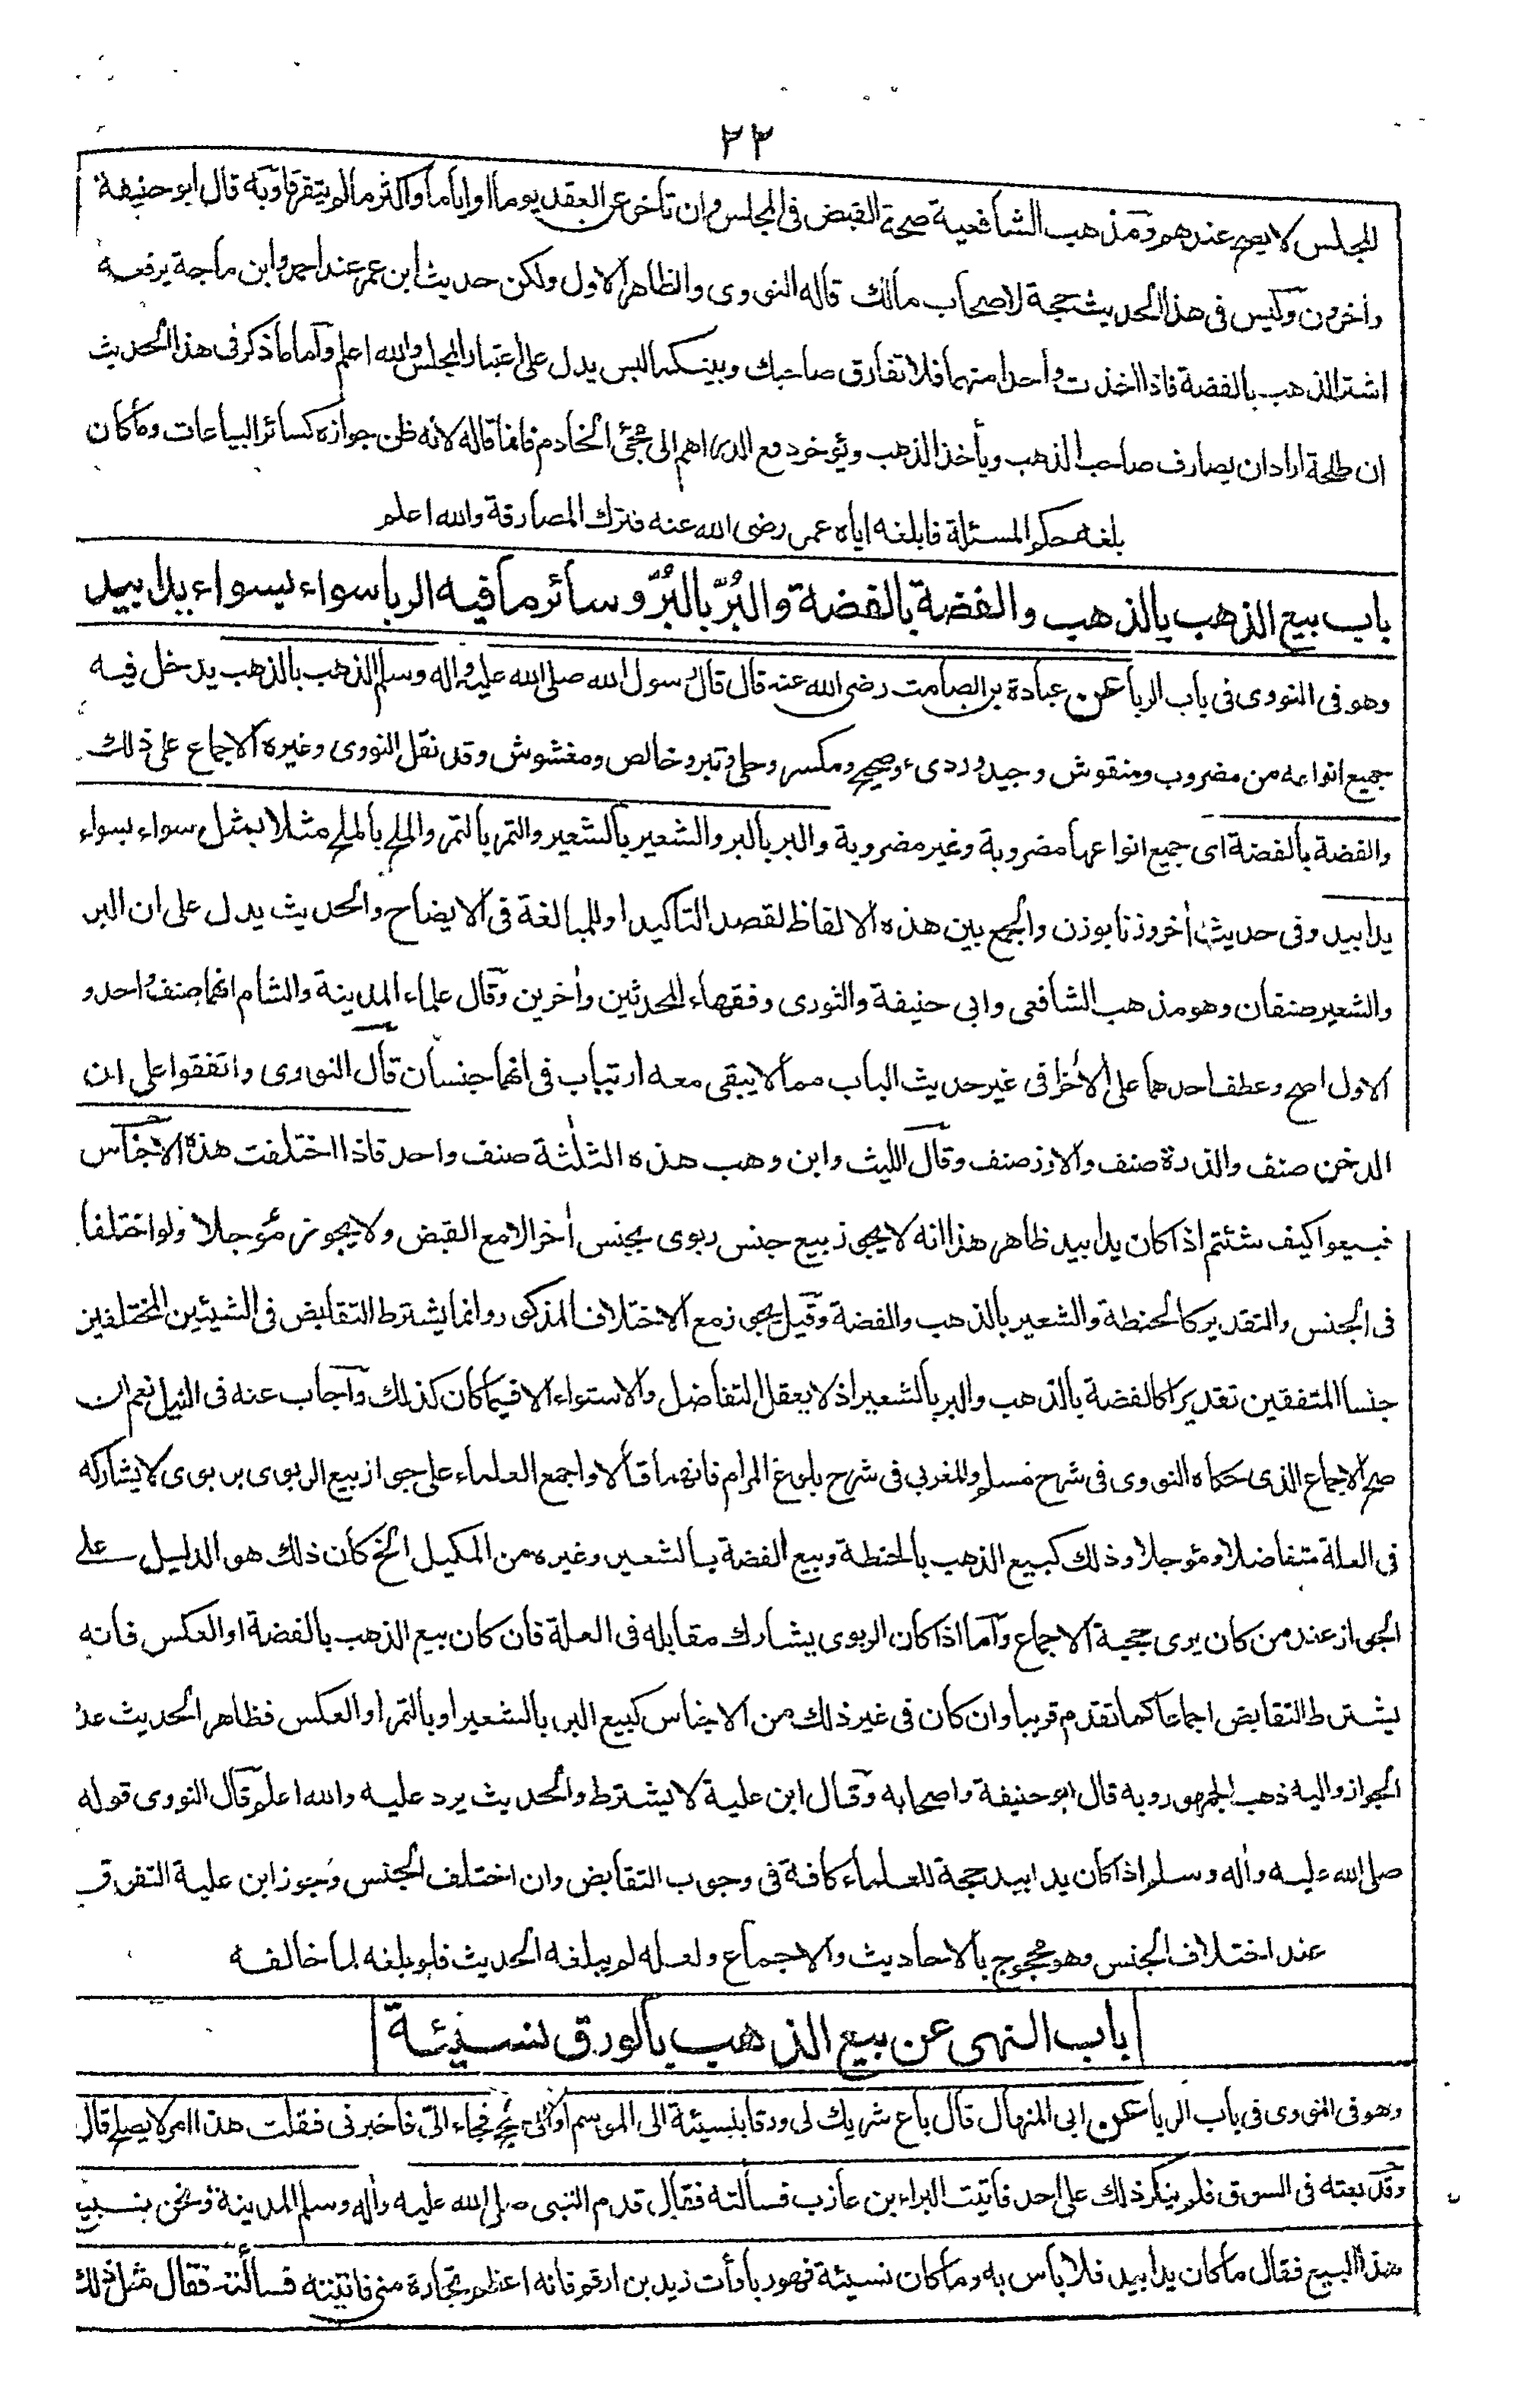 ٢٢
المجلس لا يصح عندهم ومذهب الشافعية صحة القبض فى المجلس وان تأخر عن العقد يوما او اياما واكثر مالم يتفرقا وبه قال ابو حنيفة
وأخرون وليس فى هذا الحديث حجة لاصحاب مالك قاله النووى والظاهر الاول ولكن حديث ابن عمر عند احمد وابن ماجة يرفعه
اشتر الذهب بالفضة فاذا اخذت واحدا منهما فلا تفارق صاحبك وبينكما لبس يدل على اعتبار المجلس والله اعلم وآما ما ذكر فى هذا الحديث
ان طلحة اراد ان يصارف صاحب الذهب ويأخذ الذهب ويؤخر دفع الدراهم الى مجئ الخادم فانما قاله لانه ظن جوازه كسائر البياعات وما كان
بلغه حكم المسئلة فابلغه اياه عمر رضى الله عنه فترك المصارفة والله اعلم
باب بيع الذهب بالذهب والفضة بالفضة والبُرّ بالبُرّ وسائر ما فيه الربا سواء بسواء يدا بيد
وهو فى النووى فى باب الربا عن عبادة بن الصامت رضى الله عنه قال قال رسول الله صلى الله عليه واله وسلم الذهب بالذهب يدخل فيه
جميع انواعه من مضروب ومنقوش وجيد وردىء وصحيح ومكسر وحلى وتبر وخالص ومغشوش وقد نقل النووى وغيره الاجماع على ذلك
والفضة بالفضة اى جميع انواعها مضروبة وغير مضروبة والبر بالبر والشعير بالشعير والتمر بالتمر والملح بالملح مثلا بمثل سواء بسواء
يدا بيد وفى حديث أخر وزنا بوزن والجمع بين هذه الالفاظ لقصد التاكيد او للمبالغة فى الايضاح والحديث يدل على ان البر
والشعير صنفان وهو مذهب الشافعى وابى حنيفة والثورى وفقهاء المحدثين وأخرين وقال علماء المدينة والشام انهما صنف واحد و
الاول اصح وعطف احدهما على الأخر فى غير حديث الباب مما لا يبقى معه ارتياب فى انهما جنسان قال النووى واتفقوا على ان
الدخن صنف والذرة صنف والارز صنف وقال الليث وابن وهب هذه الثلثة صنف واحد فاذا اختلفت هذه الاجناس
فبيعوا كيف شئتم اذا كان يدا بيد ظاهر هذا انه لا يجوز بيع جنس ربوى بجنس أخر الا مع القبض ولا يجوز مؤجلا ولو اختلفا
فى الجنس والتقدير كالحنطة والشعير بالذهب والفضة وقيل يجوز مع الاختلاف المذكور وانما يشترط التقابض فى الشيئين المختلفين
جنسا المتفقين تقديرا كالفضة بالذهب والبر بالشعير اذ لا يعقل التفاضل والاستواء الا فيما كان كذلك وآجاب عنه فى النيل نعم ان
صح الاجماع الذى حكاه النووى فى شرح مسلم والمغربى فى شرح بلوغ المرام فانهما قالا واجمع العلماء على جواز بيع الربوى بربوى لا يشاركه
فى العلة متفاضلا ومؤجلا وذلك كبيع الذهب بالحنطة وبيع الفضة بالشعير وغيره من المكيل الخ كان ذلك هو الدليل على
الجواز عند من كان يرى حجية الاجماع وآما اذا كان الربوى يشارك مقابله فى العلة فان كان بيع الذهب بالفضة او العكس فانه
يشترط التقابض اجماعا كما تقدم قريبا وان كان فى غير ذلك من الاجناس كبيع البر بالشعير او بالتمر او العكس فظاهر الحديث عدم
الجواز واليه ذهب الجمهور وبه قال ابو حنيفة واصحابه وقال ابن علية لا يشترط والحديث يرد عليه والله اعلم قال النووى قوله
صلى الله عليه وأله وسلم اذا كان يدا بيد حجة للعلماء كافة فى وجوب التقابض وان اختلف الجنس وجوز ابن علية التفرق
عند اختلاف الجنس وهو محجوج بالاحاديث والاجماع ولعله لم يبلغه الحديث فلو بلغه لما خالفه
باب النهى عن بيع الذهب بالورق نسيئة
وهو فى النووى فى باب الربا عن ابى المنهال قال باع شريك لى ورقا بنسيئة الى الموسم او الى الحج فجاء الىّ فاخبرنى فقلت هذا امر لا يصلح قال
وقد بعته فى السوق فلم ينكر ذلك على احد فاتيت البراء بن عازب فسألته فقال قدم النبى صلى الله عليه وأله وسلم المدينة ونحن نبيع
هذا البيع فقال ما كان يدا بيد فلا بأس به وما كان نسيئة فهو ربا وأت زيد بن ارقم فانه اعظم تجارة منى فاتيته فسألته فقال مثل ذلك